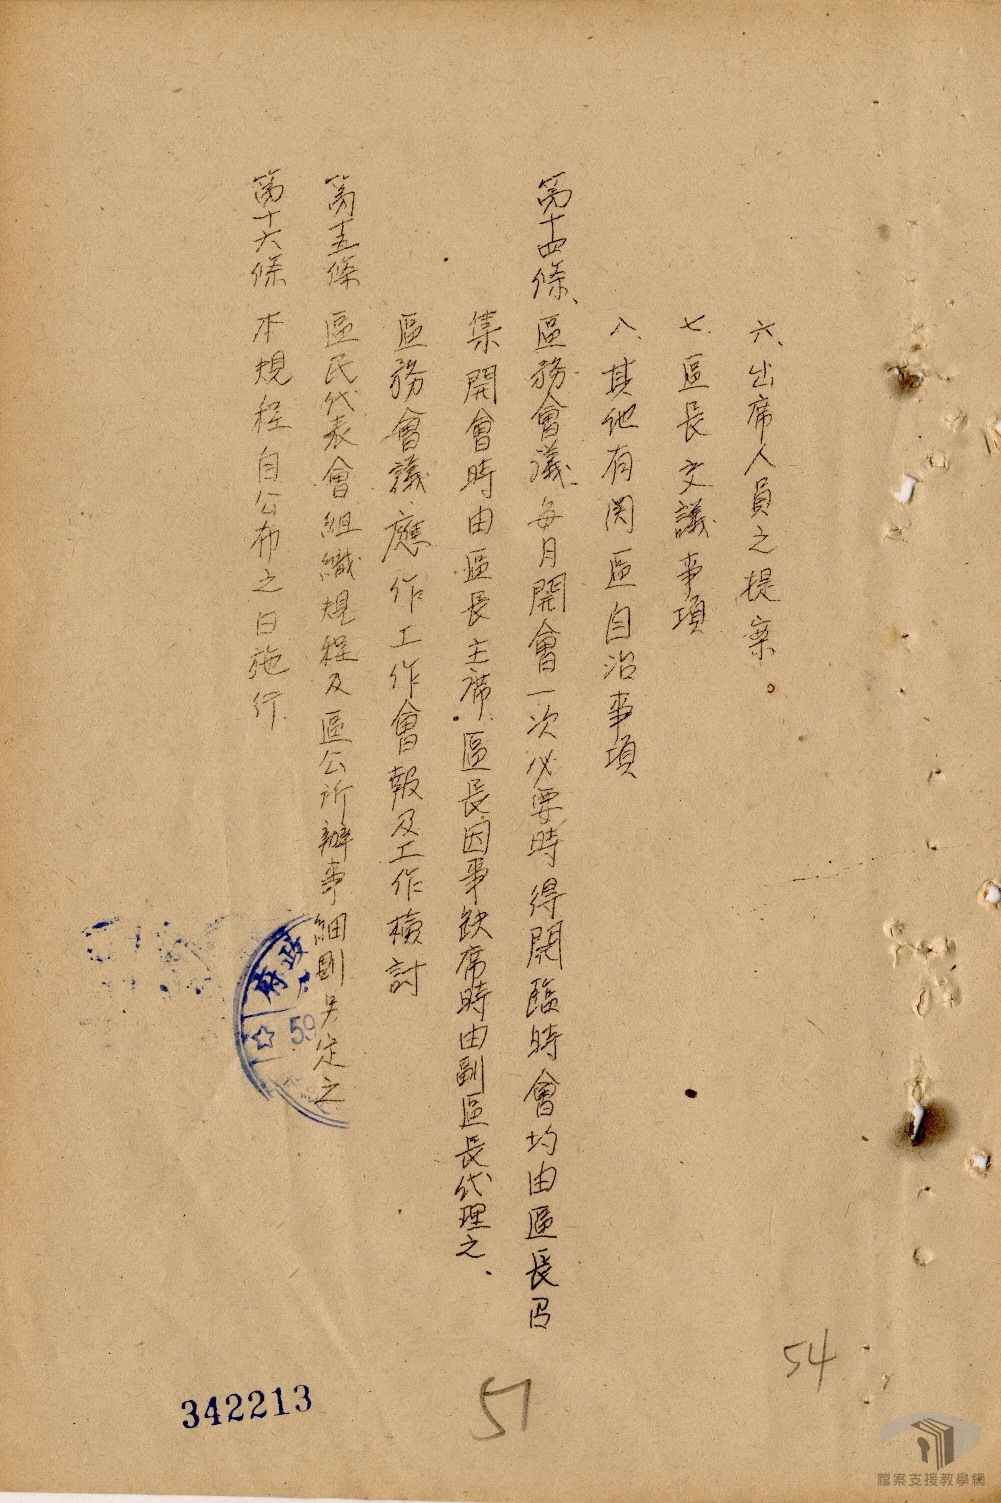 六、出席人員之提案。
七、區長交議事項
八、其他有関區自治事項
第十四條、區務會議每月開會一次必要時得開臨時會均由區長召
集開會時由區長主席、區長因事缺席時由副區長代理之、
區務會議應作工作會報及工作檢討
第十五條 區民代表會組織規程及區公所辦事細則另定之
第十六條 本規程自公布之日施行、
政
府
59
342213
51
54
檔案支援教學網